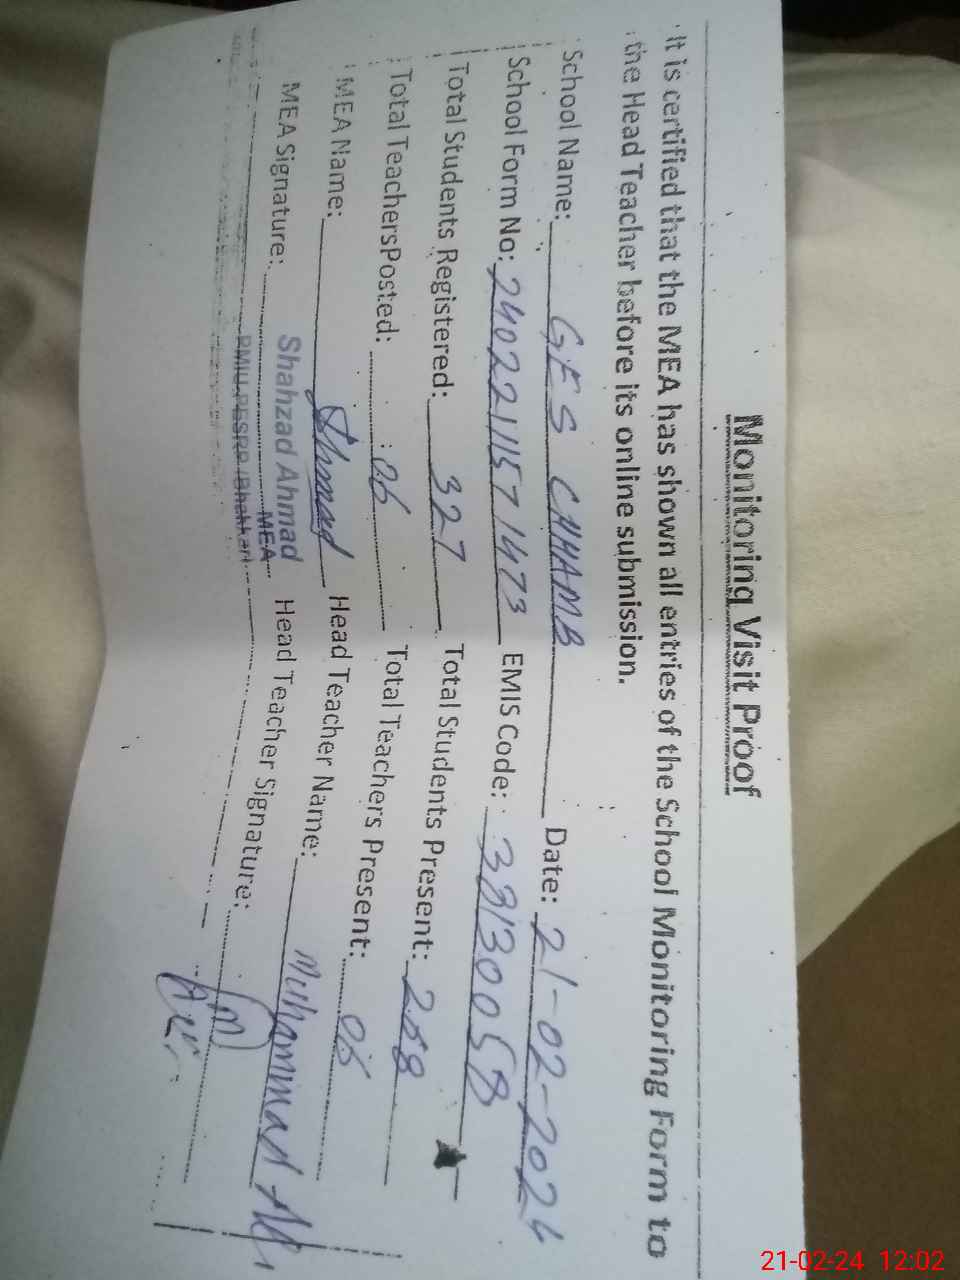 Monitoring Visit Proof
It is certified that the MEA has shown all entries of the School Monitoring Form to
the Head Teacher before its online submission.
School Name: GES CHHAMB Date: 21-02-2024
School Form No: 2402211571473 EMIS Code: 33130058
Total Students Registered: 327 Total Students Present: 268
Total TeachersPosted: 06 Total Teachers Present: 06
MEA Name: Ahmad Head Teacher Name: Muhammad Ali
MEA Signature: Shahzad Ahmad Head Teacher Signature:
MEA
PMIU-PESRP (Bhakkar)
21-02-24 12:02